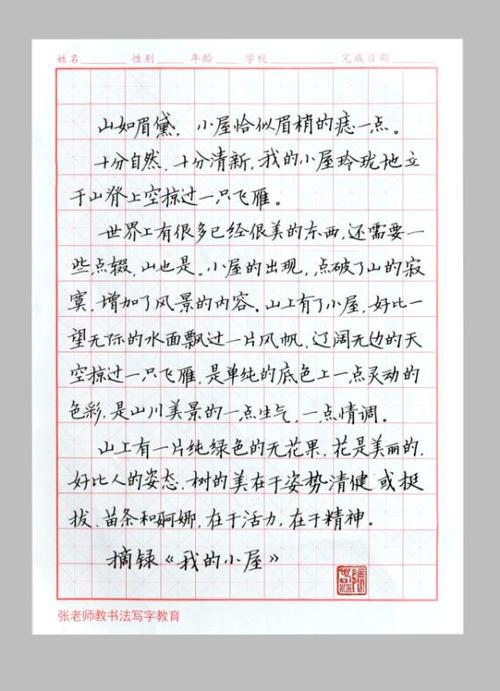 姓名 性别 年龄 学校 完成日期
山如眉黛，小屋恰似眉梢的痣一点。
十分自然，十分清新，我的小屋玲珑地立
于山脊上空掠过一只飞雁。
世界上有很多已经很美的东西，还需要一
些点缀，山也是。小屋的出现，点破了山的寂
寞，增加了风景的内容。山上有了小屋，好比一
望无际的水面飘过一片风帆，辽阔无边的天
空掠过一只飞雁，是单纯的底色上一点灵动的
色彩，是山川美景的一点生气，一点情调。
山上有一片纯绿色的无花果，花是美丽的，
好比人的姿态，树的美在于姿势清健或挺
拔、苗条和婀娜，在于活力，在于精神。
摘录《我的小屋》
张老师教书法写字教育